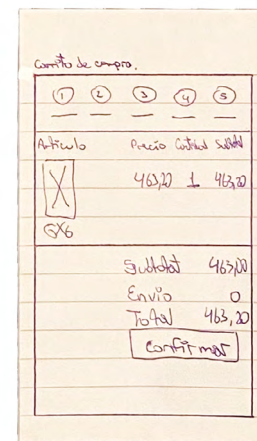 Carrito de compra.
1 2 3 4 5
Artículo Precio Cantidad Subtotal
463,20 1 463,20
Subtotal 463,00
Envío 0
Total 463,20
Confirmar